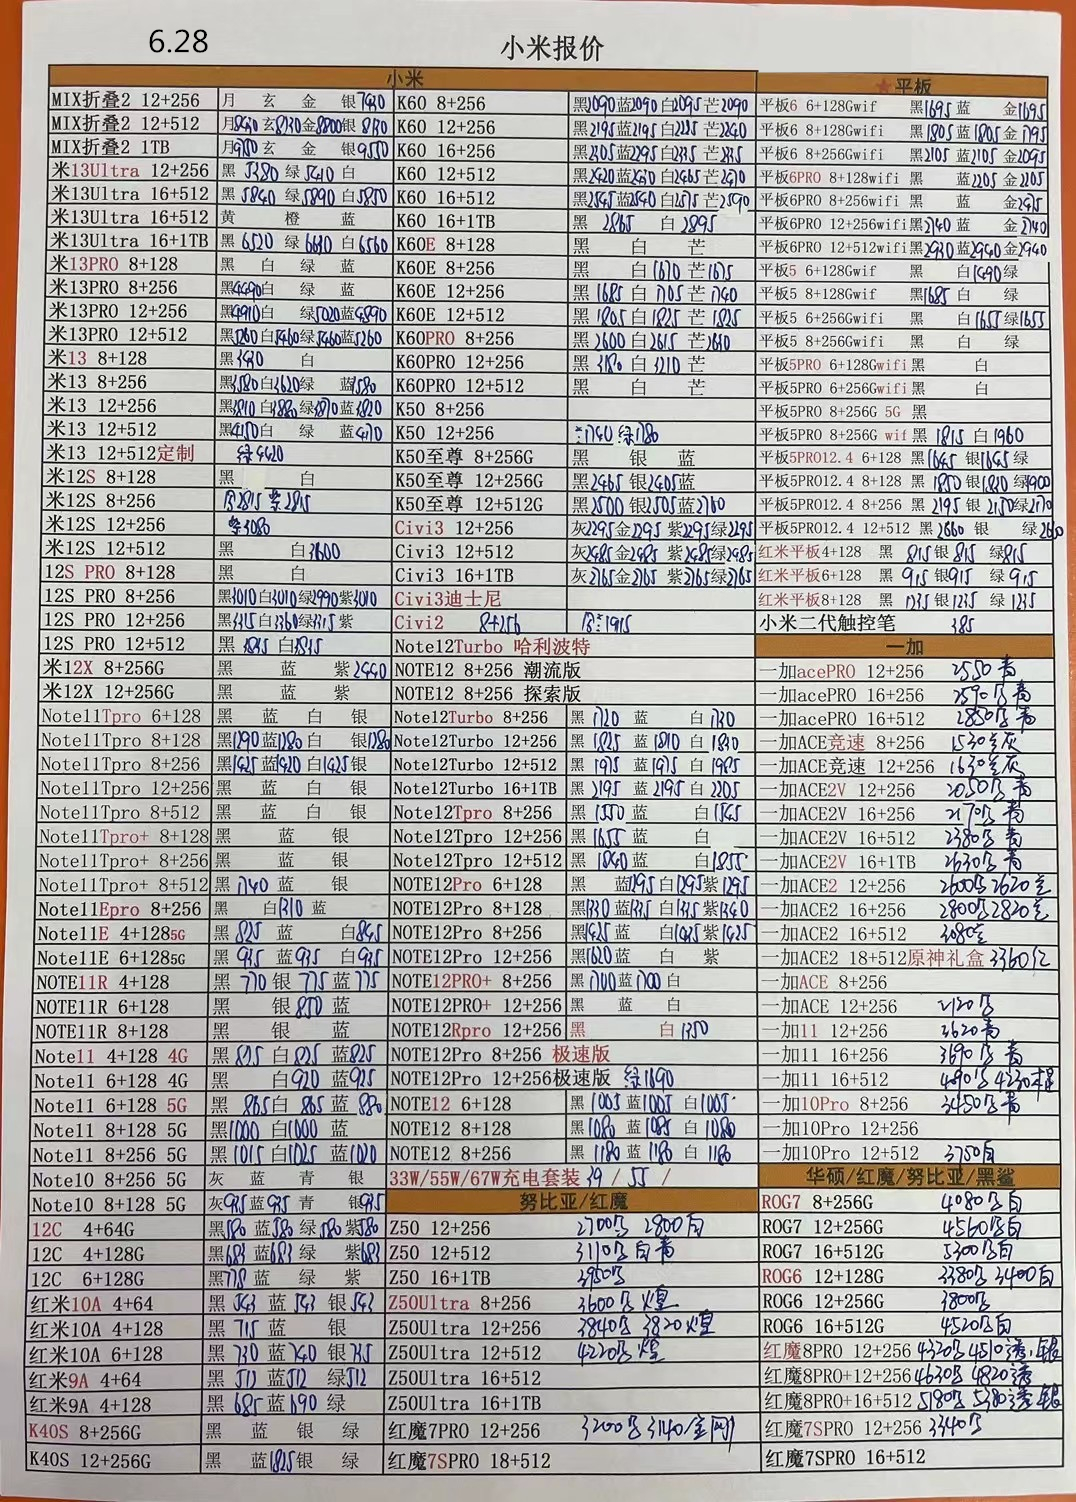 6.28
小米报价
小米
MIX折叠2 12+256 月 玄 金 银7420
MIX折叠2 12+512 月8420玄8130金8800银8130
MIX折叠2 1TB 月9550玄 金 银9550
米13Ultra 12+256 黑 5380 绿 5410 白
米13Ultra 16+512 黑 5840 绿 5890 白 5850
米13Ultra 16+512 黄 橙 蓝
米13Ultra 16+1TB 黑 6520 绿 6630 白 6560
米13PRO 8+128 黑 白 绿 蓝
米13PRO 8+256 黑4490白 绿 蓝
米13PRO 12+256 黑4910白 绿5020蓝4890
米13PRO 12+512 黑5260白5460绿5460蓝5260
米13 8+128 黑3430 白
米13 8+256 黑3580白3620绿 蓝3580
米13 12+256 黑3810白3880绿3870蓝3820
米13 12+512 黑4150白 绿 蓝4170
米13 12+512定制 绿4420
米12S 8+128 黑 白
米12S 8+256 白2815 紫2815
米12S 12+256 紫3080
米12S 12+512 黑 白3600
12S PRO 8+128 黑 白
12S PRO 8+256 黑3010白3010绿2990紫3010
12S PRO 12+256 黑3315白3360绿3315紫
12S PRO 12+512 黑 3835 白3835
米12X 8+256G 黑 蓝 紫2440
米12X 12+256G 黑 蓝 紫
Note11Tpro 6+128 黑 蓝 白 银
Note11Tpro 8+128 黑1290蓝1280白 银1280
Note11Tpro 8+256 黑1425蓝1420白1425银
Note11Tpro 12+256 黑 蓝 白 银
Note11Tpro 8+512 黑 蓝 白 银
Note11Tpro+ 8+128 黑 蓝 银
Note11Tpro+ 8+256 黑 蓝 银
Note11Tpro+ 8+512 黑 1740 蓝 银
Note11Epro 8+256 黑 白1310 蓝
Note11E 4+1285G 黑 825 蓝 白845
Note11E 6+1285G 黑 935 蓝 935 白935
NOTE11R 4+128 黑 770 银 775 蓝 775
NOTE11R 6+128 黑 银850 蓝
NOTE11R 8+128 黑 银 蓝
Note11 4+128 4G 黑 825 白 825 蓝825
Note11 6+128 4G 黑 白920 蓝925
Note11 6+128 5G 黑 865 白 865 蓝 880
Note11 8+128 5G 黑1000 白1000 蓝
Note11 8+256 5G 黑 1015 白1025 蓝1020
Note10 8+256 5G 灰 蓝 青 银
Note10 8+128 5G 灰935 蓝935 青 银935
12C 4+64G 黑580 蓝580 绿580 紫580
12C 4+128G 黑683 蓝683 绿 紫683
12C 6+128G 黑778 蓝 绿 紫
红米10A 4+64 黑 543 蓝 543 银543
红米10A 4+128 黑 715 蓝 银
红米10A 6+128 黑 730 蓝740 银735
红米9A 4+64 黑 511 蓝512 绿512
红米9A 4+128 黑 685 蓝690 绿
K40S 8+256G 黑 蓝 银 绿
K40S 12+256G 黑 蓝1825银 绿
K60 8+256 黑2090蓝2090白2095芒2090
K60 12+256 黑2195蓝2195白2235芒2240
K60 16+256 黑2305蓝2295白2335芒2335
K60 12+512 黑2420蓝2430白2465芒2470
K60 16+512 黑2545蓝2540白2575芒2590
K60 16+1TB 黑 2865 白 2895
K60E 8+128 黑 白 芒
K60E 8+256 黑 白1670 芒1675
K60E 12+256 黑 1685 白 1705 芒1740
K60E 12+512 黑 1805 白 1825 芒 1825
K60PRO 8+256 黑 2600 白 2615 芒2630
K60PRO 12+256 黑 3180 白 3210 芒
K60PRO 12+512 黑 白 芒
K50 8+256
K50 12+256 1740 绿1780
K50至尊 8+256G 黑 银 蓝
K50至尊 12+256G 黑2465 银2405蓝
K50至尊 12+512G 黑2500银2505蓝2760
Civi3 12+256 灰2295金2295 紫2295绿2295
Civi3 12+512 灰2485金2485 紫2485绿2485
Civi3 16+1TB 灰2765金2765 紫2765绿2765
Civi3迪士尼
Civi2 8+256 1915
Note12Turbo 哈利波特
NOTE12 8+256 潮流版
NOTE12 8+256 探索版
Note12Turbo 8+256 黑 1720 蓝 白 1730
Note12Turbo 12+256 黑 1825 蓝 1810 白 1830
Note12Turbo 12+512 黑 1975 蓝1975 白 1985
Note12Turbo 16+1TB 黑 2195 蓝2195 白 2205
Note12Tpro 8+256 黑 1550 蓝 白1545
Note12Tpro 12+256 黑1655 蓝 白
Note12Tpro 12+512 黑 1840 蓝 白1855
NOTE12Pro 6+128 黑 蓝1295白1295紫1295
NOTE12Pro 8+128 黑1330蓝1335白1335紫1340
NOTE12Pro 8+256 黑1425蓝 白1425紫1425
NOTE12Pro 12+256 黑1620蓝 白 紫
NOTE12PRO+ 8+256 黑1700蓝1700白
NOTE12PRO+ 12+256 黑 蓝 白
NOTE12Rpro 12+256 黑 白1350
NOTE12Pro 8+256 极速版
NOTE12Pro 12+256极速版 绿1690
NOTE12 6+128 黑 1005 蓝1005 白1005
NOTE12 8+128 黑 1080 蓝1085 白 1080
NOTE12 8+256 黑 1180 蓝1180 白 1180
33W/55W/67W充电套装 39 / 55 /
努比亚/红魔
Z50 12+256 2700 2800白
Z50 12+512 3110 白 青
Z50 16+1TB 3950
Z50Ultra 8+256 3600 煌
Z50Ultra 12+256 3840 3820煌
Z50Ultra 12+512 4220 煌
Z50Ultra 16+512
Z50Ultra 16+1TB
红魔7PRO 12+256 3200 3140
红魔7SPRO 18+512
★平板
平板6 6+128Gwif 黑1695蓝 金1695
平板6 8+128Gwifi 黑1805蓝1805金1795
平板6 8+256Gwifi 黑2105 蓝2105 金2095
平板6PRO 8+128wifi 黑 蓝2205 金2205
平板6PRO 8+256wifi 黑 蓝 金2475
平板6PRO 12+256wifi 黑2740 蓝 金2740
平板6PRO 12+512wifi 黑2930蓝2940金2940
平板5 6+128Gwif 黑 白1490绿
平板5 8+128Gwif 黑1685 白 绿
平板5 6+256Gwifi 黑 白1655绿1655
平板5 8+256Gwifi 黑 白 绿
平板5PRO 6+128Gwifi 黑 白
平板5PRO 6+256Gwifi 黑 白
平板5PRO 8+256G 5G 黑
平板5PRO 8+256G wif 黑 1815 白1960
平板5PRO12.4 6+128 黑1645 银1645绿
平板5PRO12.4 8+128 黑 1850 银1830绿1900
平板5PRO12.4 8+256 黑 2195 银2150绿2170
平板5PRO12.4 12+512 黑 2660 银 绿2660
红米平板4+128 黑 815银 815 绿815
红米平板6+128 黑 915 银915 绿 915
红米平板8+128 黑 1235 银1235 绿 1235
小米二代触控笔 385
一加
一加acePRO 12+256 2550 青
一加acePRO 16+256 2590 青
一加acePRO 16+512 2850 青
一加ACE竞速 8+256 1530 灰
一加ACE竞速 12+256 1630 灰
一加ACE2V 12+256 2050 青
一加ACE2V 16+256 2170 青
一加ACE2V 16+512 2380 青
一加ACE2V 16+1TB 2630 青
一加ACE2 12+256 2600 2620
一加ACE2 16+256 2800 2820
一加ACE2 16+512 3080
一加ACE2 18+512原神礼盒 3360红
一加ACE 8+256
一加ACE 12+256 2120
一加11 12+256 3620青
一加11 16+256 3690 青
一加11 16+512 4090 4230
一加10Pro 8+256 3450 青
一加10Pro 12+256
一加10Pro 12+512 3750白
华硕/红魔/努比亚/黑鲨
ROG7 8+256G 4080 白
ROG7 12+256G 4560 白
ROG7 16+512G 5300 白
ROG6 12+128G 3380 3400白
ROG6 12+256G 3800
ROG6 16+512G 4520 白
红魔8PRO 12+256 4320 4510透.银
红魔8PRO+12+256 4630 4820透
红魔8PRO+16+512 5180 5380透银
红魔7SPRO 12+256 3340
红魔7SPRO 16+512